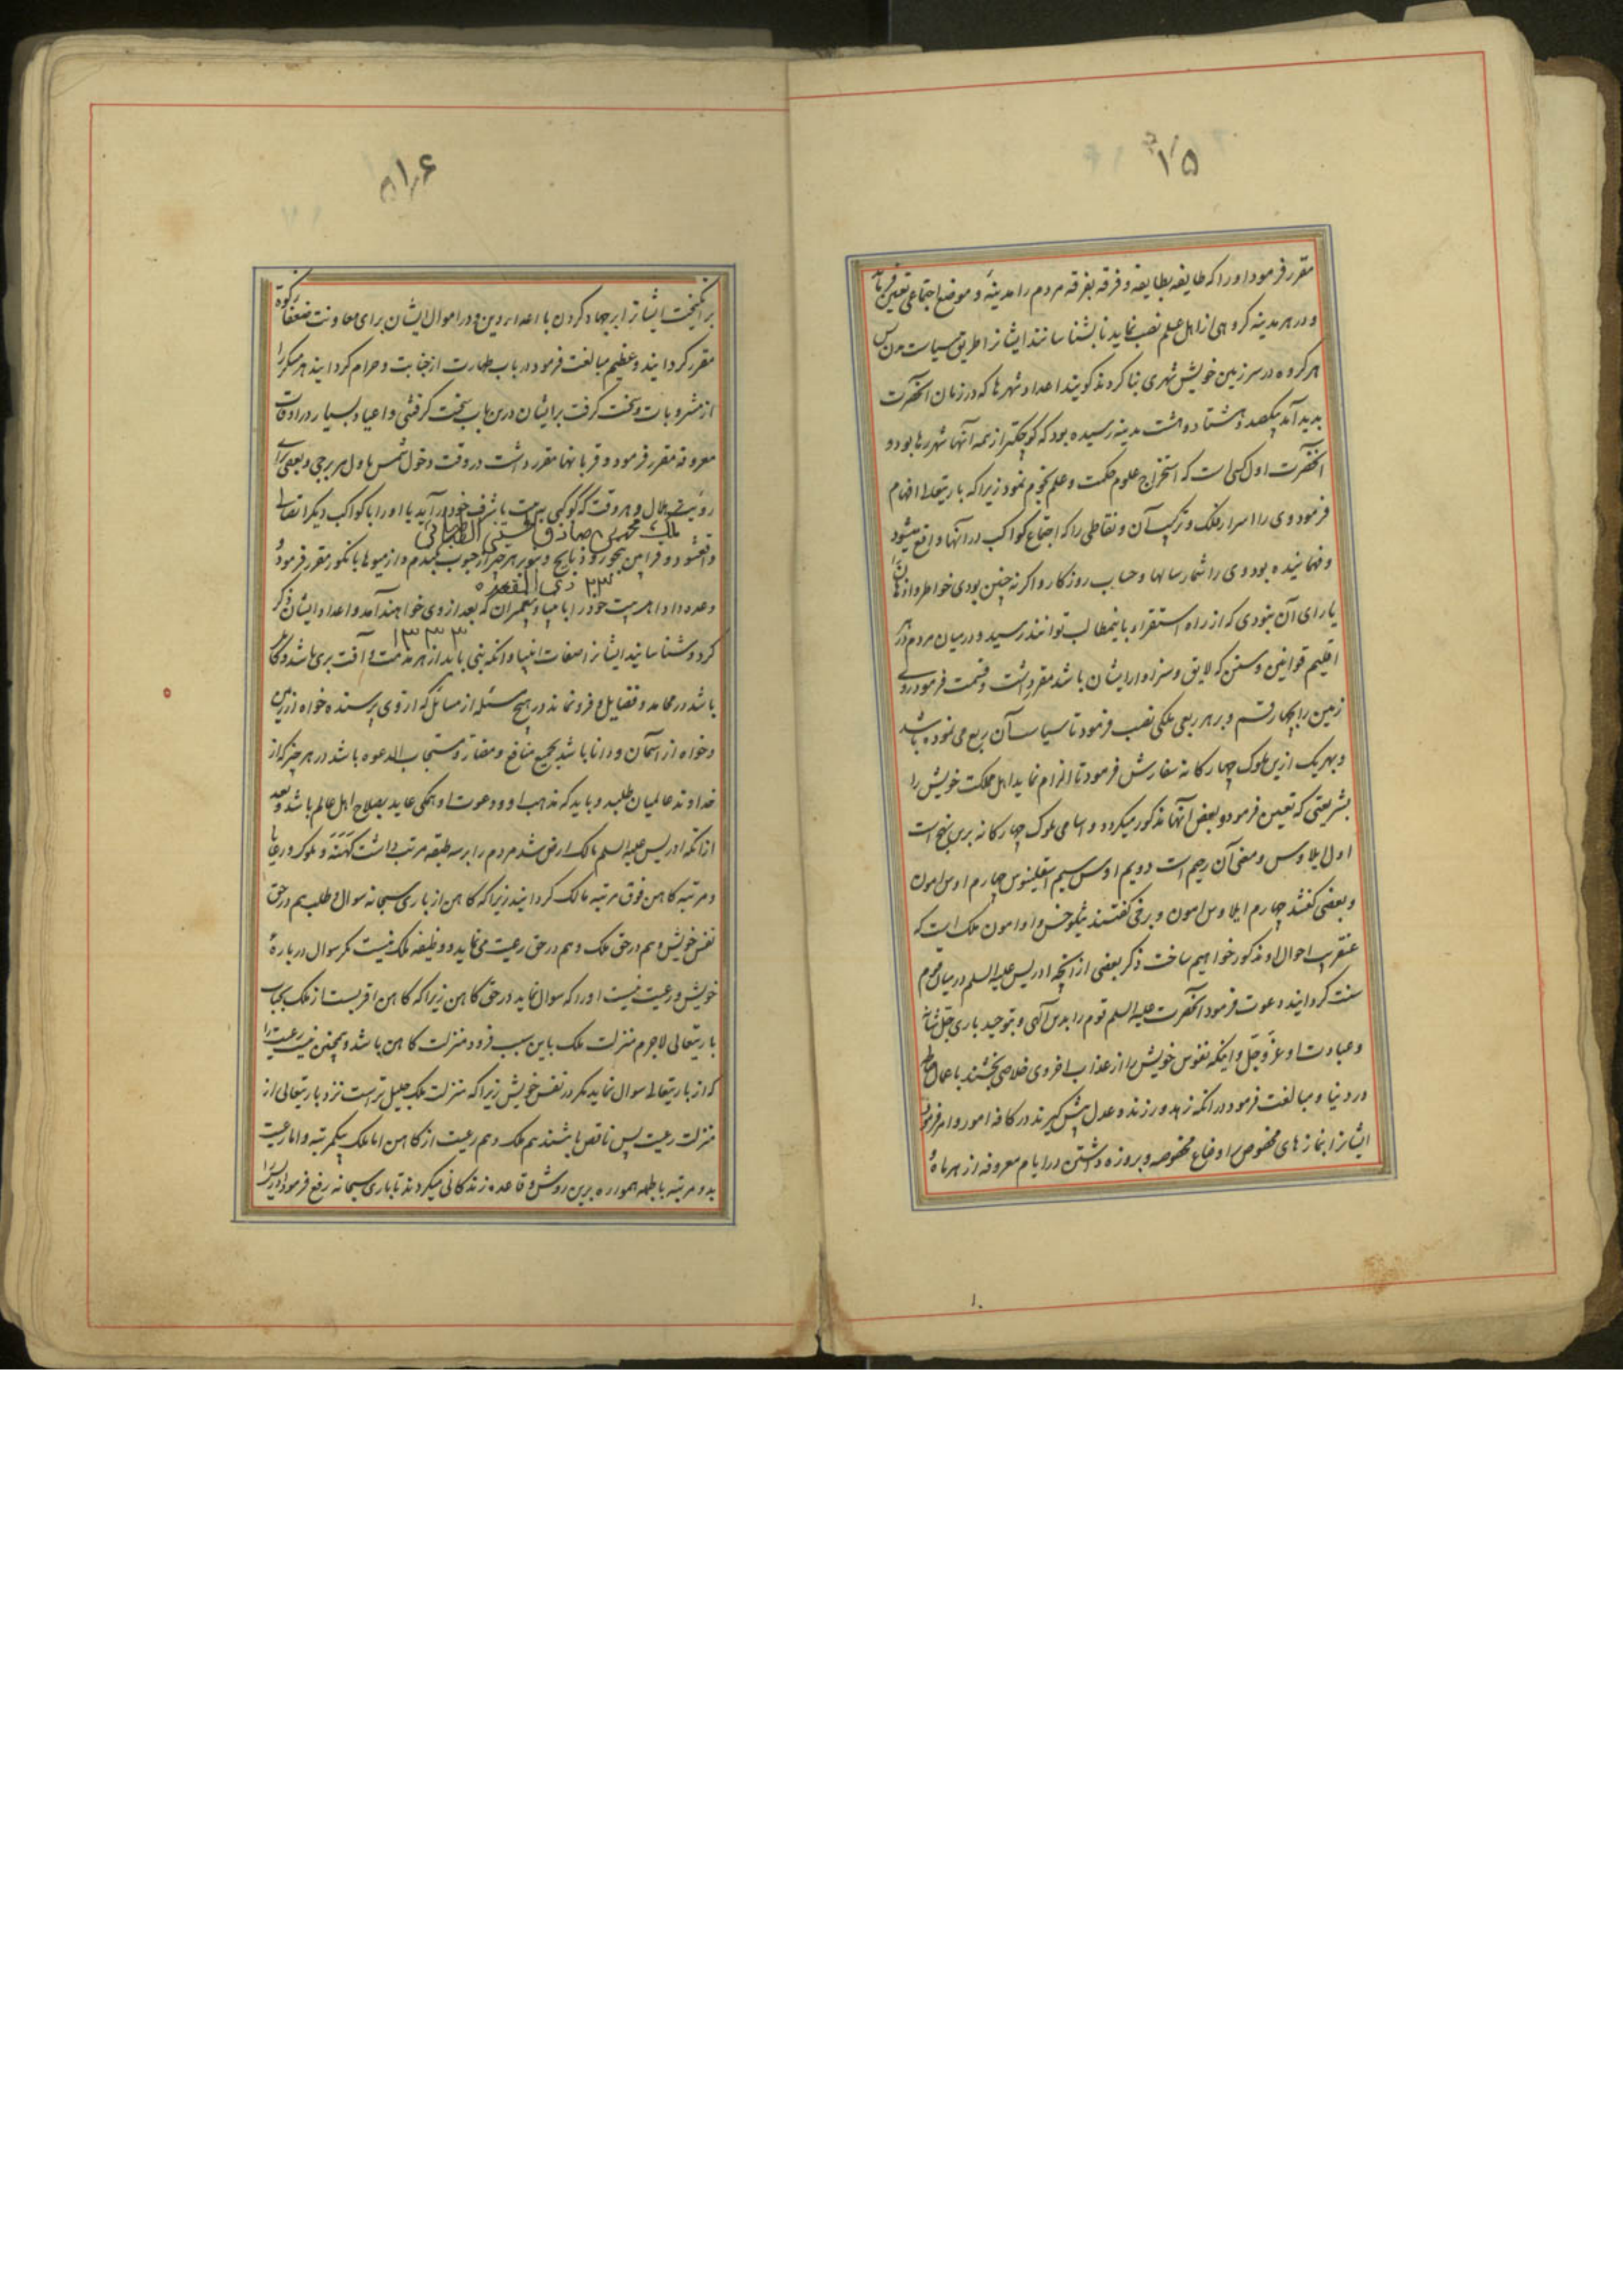 ۱۵
مقرر فرمود او را که طایفه بطایفه و فرقه بفرقه مردم را مدینهٔ و موضع اجتماعی تعیین فرماید
و در هر مدینه کروهی از اهل علم نصب نماید تا بشناسانند ایشانرا طریق سیاست مدن پس
هر کروه در سرزمین خویش شهری بنا کردند کویند اعداد شهرها که در زمان آنحضرت
پدید آمد یکصد و هشتاد و هشت مدینه رسیده بود که کوچکتر از همه آنها شهر رها بود و
آنحضرت اول کسی است که استخراج علوم حکمت و علم نجوم نمود زیرا که باریتعالی افهام
فرمود وی را اسرار فلک و ترکیب آن و نقاطی را که اجتماع کواکب در آنها واقع میشود
و فهمانیده بود وی را شمار سالها و حساب روزکار و اکر نه چنین بودی خواطر و اذهان را
یارای آن نبودی که از راه استقراء باینمطالب توانند رسید و در میان مردم هر
اقلیم قوانین و سنن که لایق و سزاوار ایشان باشد مقرر داشت و قسمت فرمود روی
زمین را بچهار قسم و بر هر ربعی ملکی نصب فرمود تا سیاست آن ربع می نموده باشد
و بهر یک ازین ملوک چهار کانه سفارش فرمود تا الزام نماید اهل مملکت خویش را
بشریعتی که تعیین فرمود و بعض آنها مذکور میکردد و اسامی ملوک چهار کانه برین نهج است
اول ایلاوس و معنی آن رحیم است دویم اوس سیم اسقلینوس چهارم اوس امون
و بعضی کفتند چهارم ایلاوس امون و برخی کفتند بنیلوخس و او امون ملک است که
عنقریب احوال او مذکور خواهیم ساخت ذکر بعضی از آنچه ادریس علیه السلم در میان قوم
سنت کردانید دعوت فرمود آنحضرت علیه السلم قوم را بدین آلهی و بتوحید باری جل شانه
و عبادت او عز و جل و اینکه نفوس خویش را از عذاب اخروی خلاصی بخشند باعمال صالحه
در دنیا و مبالغت فرمود در آنکه زهد ورزند و عدل پیش کیرند در کافه امور و امر فرمود
ایشانرا بنمازهای مخصوص باوضاع مخصوصه و بروزه داشتن در ایام معروفه از هر ماهٔ
۱۶
برانکیخت ایشانرا بر جهاد کردن با اعداء دین و در اموال ایشان برای معاونت ضعفا زکوة
مقرر کردانید و عظیم مبالغت فرمود در باب طهارت از جنابت و حرام کردانید هر مسکر را
از مشروبات و سخت کرفت بر ایشان درین باب سخت کرفتنی و اعیاد بسیار در اوقات
معروفه مقرر فرمود و قربانها مقرر داشت در وقت دخول شمس باول هر برجی و بعضی برای
رویت هلال و هر وقت که کوکبی به بیت یا شرف خود در آید یا او را با کواکب دیکر اتصال
ملک محمد بن صادق الحسینی الطباطبائی
واقعشود و قرابین بخور و ذبایح و نوبر هر چیز از حبوب کندم و از میوها بانکور مقرر فرمود و
۲۳ ذی القعده
وعده داد اهل بیت خود را بانبیا و پیغمبران که بعد از وی خواهند آمد و اعداد ایشان ذکر
۱۳۳۳
کرد و شناسانید ایشانرا صفات انبیا و آنکه نبی باید از هر مذمت و آفت بری باشد و کامل
باشد در محامد و فضایل و فرو نماند در هیچ مسئله از مسائل که از وی پرسند خواه از زمین
و خواه از آسمان و دانا باشد بجمیع منافع و مضار و مستجاب الدعوه باشد در هر چیز که از
خداوند عالمیان طلبد و باید که مذهب او و دعوت او همکی عاید بصلاح اهل عالم باشد و بعد
از آنکه ادریس علیه السلم مالک ارض شد مردم را بر سه طبقه مرتب داشت کهنه و ملوک و رعایا
و مرتبه کاهن فوق مرتبه مالک کردانید زیرا که کاهن از باری سبحانه سوال و طلب هم در حق
نفس خویش و هم در حق ملک و هم در حق رعیت می نماید و وظیفه ملک نیست مکر سوال در بارهٔ
خویش و رعیت نیست او را که سوال نماید در حق کاهن زیرا که کاهن اقربست از ملک بجناب
باریتعالی لاجرم منزلت ملک باین سبب فرود منزلت کاهن باشد و همچنین نیست رعیت را
که از باریتعالی سوال نماید مکر در نفس خویش زیرا که منزلت ملک جلیل تر است نزد باریتعالی از
منزلت رعیت پس ناقص باشند هم ملک و هم رعیت از کاهن اما ملک بیکمرتبه و اما رعیت
بدو مرتبه بالجمله همواره برین روش و قاعده زندکانی میکردند تا باری سبحانه رفع فرمود ادریس را